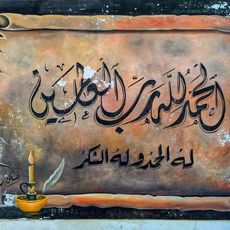 الحمد لله رب العالمين
له الحمد وله الشكر